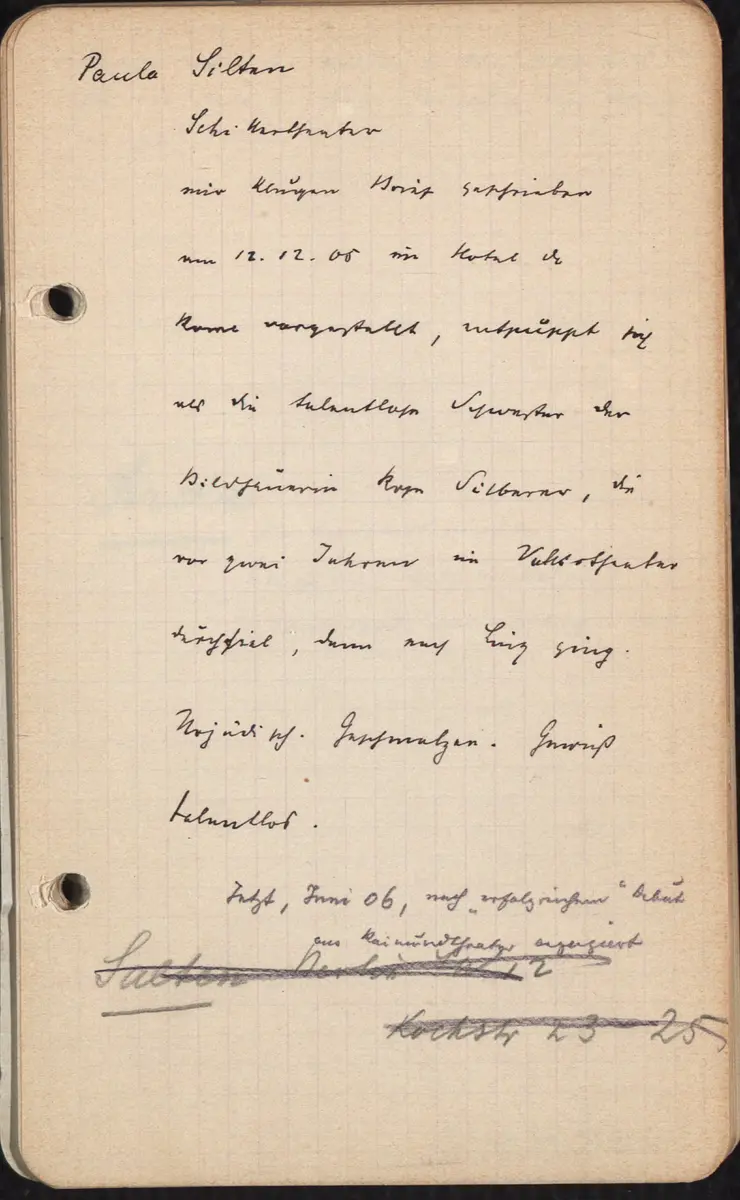 Paula Silten
Schillertheater
mir klugen Brief geschrieben
am 12. 12. 05 im Hotel de
Rome vorgestellt, entpuppt sich
als die talentlose Schwester der
Bildhauerin Rosa Silberer, die
vor zwei Jahren im Volkstheater
durchfiel, dann nach Linz ging.
Urjüdisch. Geschmalzen. Gewiß
talentlos.
Jetzt, Juni 06, nach „erfolgreichem“ Debut
ans Raimundtheater engagiert
Salten Berlin SW 12
Kochstr 23 25